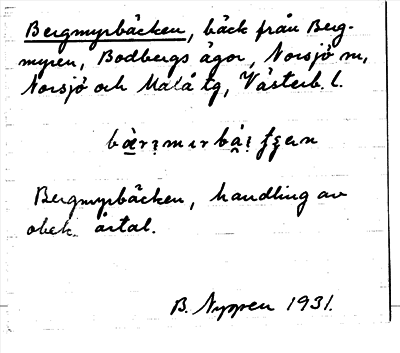 Bergmyrbäcken, bäck från Berg-
myren, Bodbergs ägor, Norsjö sn,
Norsjö och Malå tg, Västerb. l.
Bergmyrbäcken, handling av
obek. årtal.
B. Nyppen 1931.